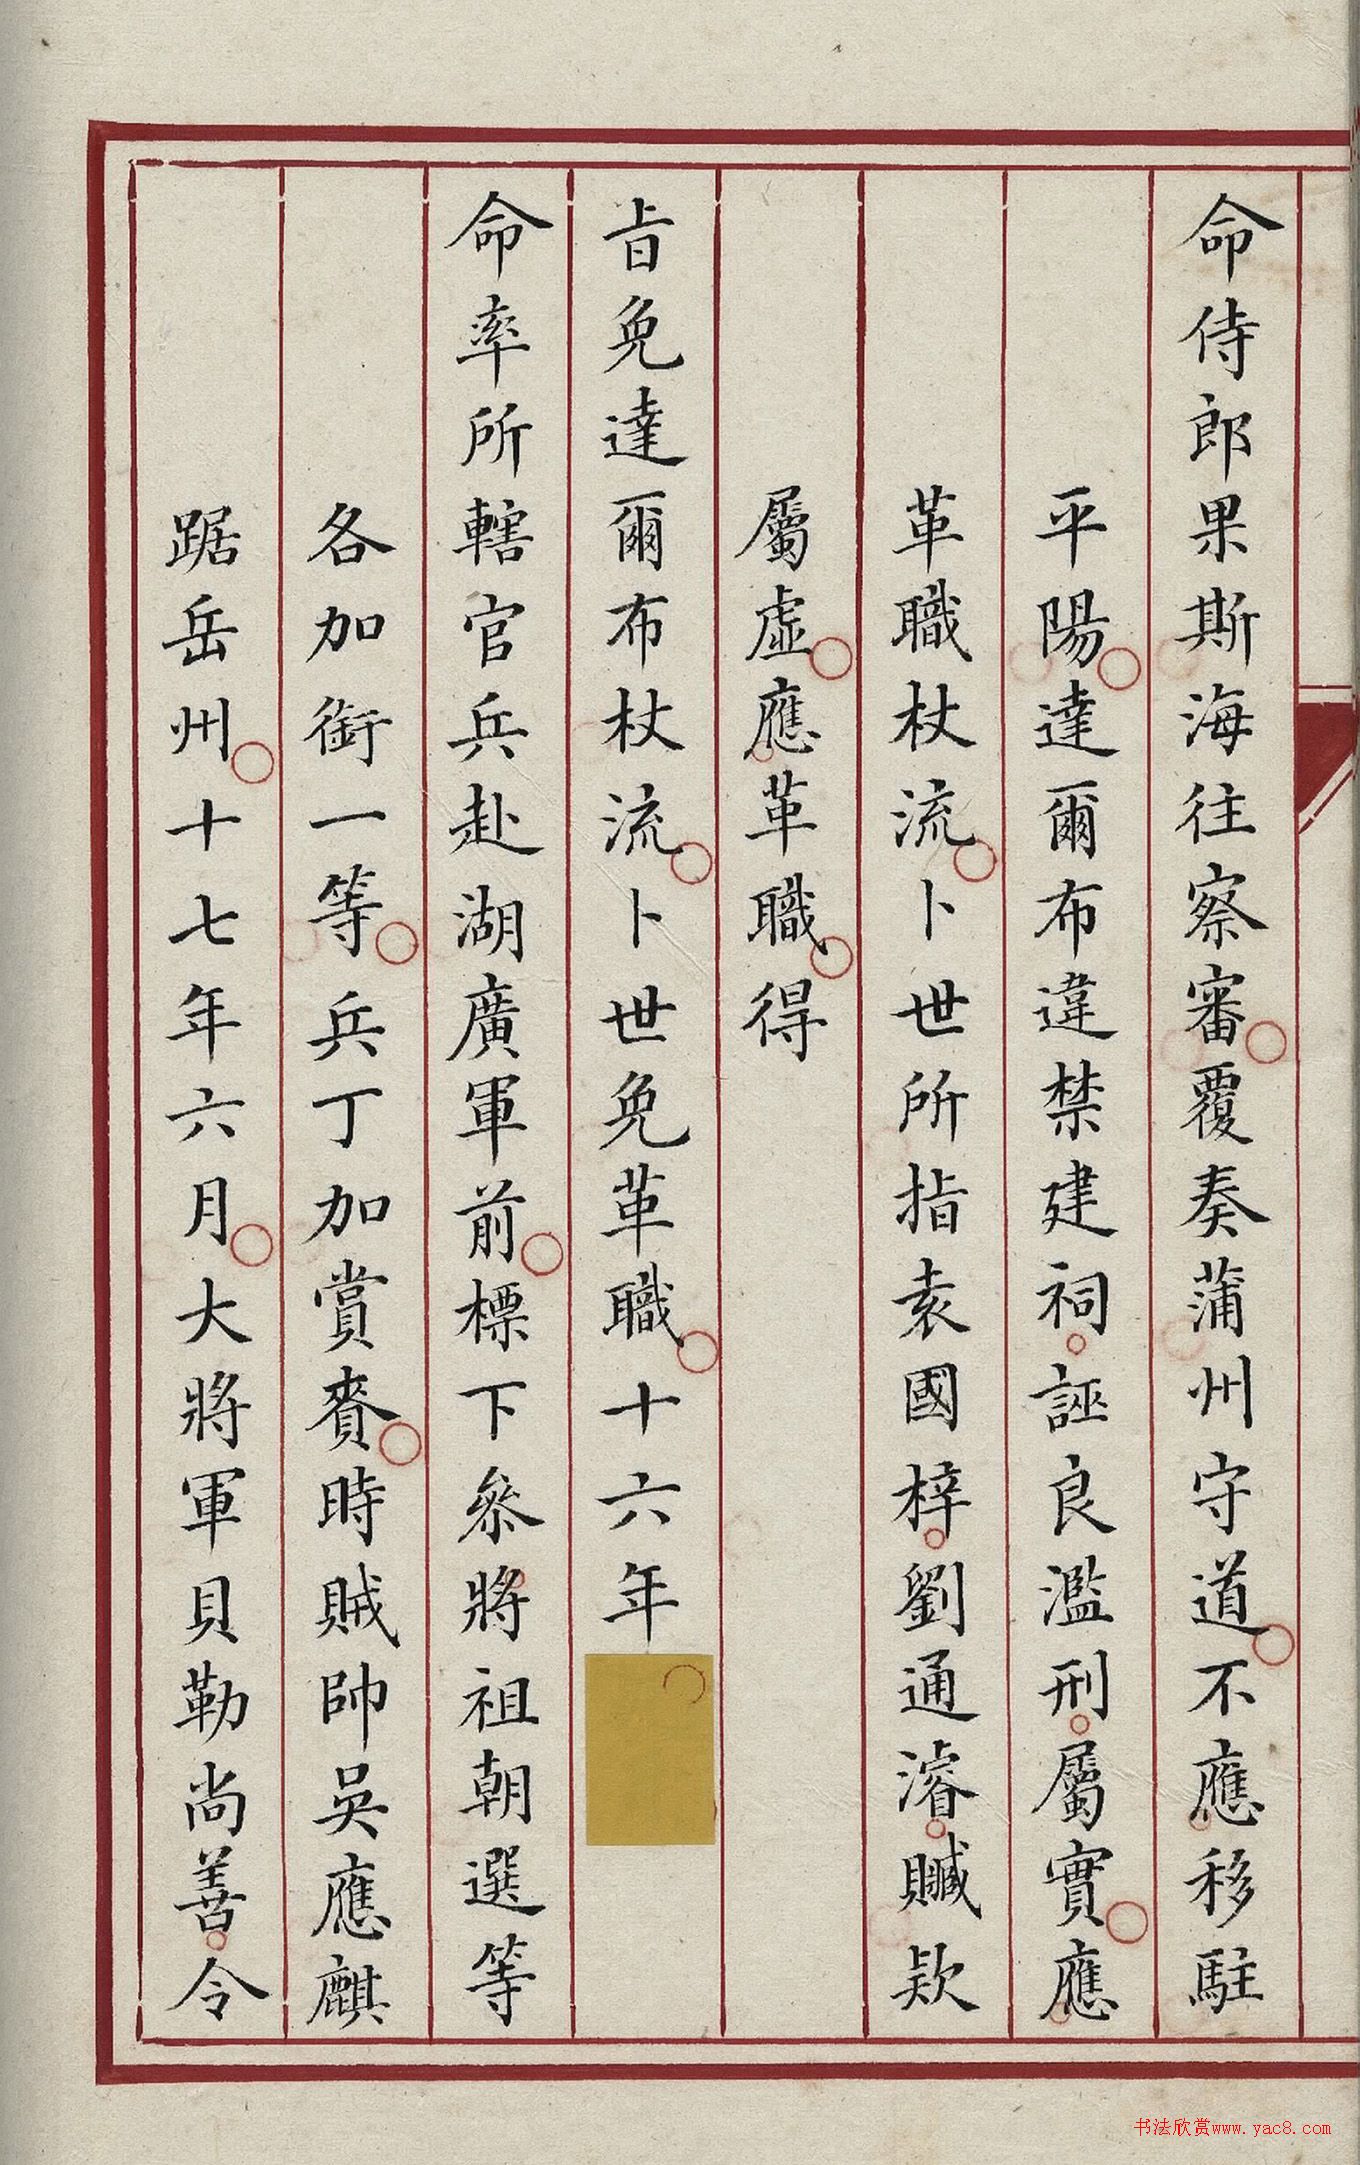 命侍郎果斯海往察審覆奏蒲州守道不應移駐
平陽達爾布違禁建祠誣良濫刑屬實應
革職杖流卜世所指袁國梓劉通濬贓欵
屬虛應革職得
旨免達爾布杖流卜世免革職十六年
命率所轄官兵赴湖廣軍前標下叅將祖朝選等
各加銜一等兵丁加賞賚時賊帥吳應麒
踞岳州十七年六月大將軍貝勒尚善令
书法欣赏www.yac8.com